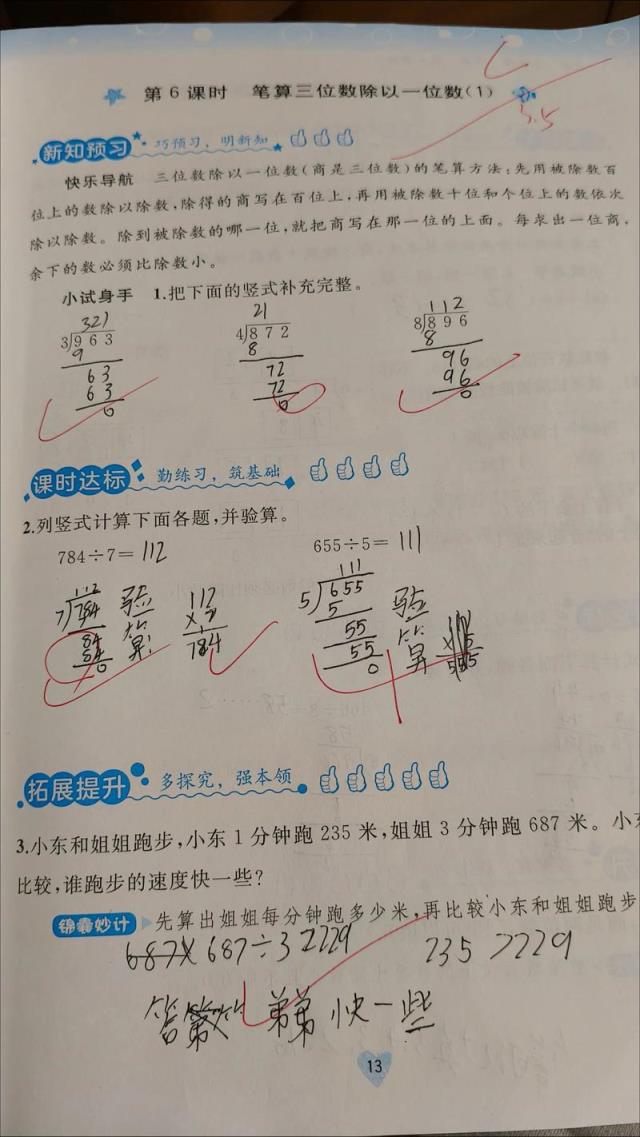 第6课时 笔算三位数除以一位数(1)
3.5
新知预习 巧预习,明新知
快乐导航 三位数除以一位数(商是三位数)的笔算方法:先用被除数百
位上的数除以除数,除得的商写在百位上,再用被除数十位和个位上的数依次
除以除数。除到被除数的哪一位,就把商写在那一位的上面。每求出一位商,
余下的数必须比除数小。
小试身手 1.把下面的竖式补充完整。
321 21 112
3 963 4 872 8 896
9 8 8
63 72 96
63 72 96
0 0 0
课时达标 勤练习,筑基础
2.列竖式计算下面各题,并验算。
784÷7=112 655÷5=111
112 111
7 784 验算: 112 5 655 验算
84 ×7 5
84 784 55
0 55
0
拓展提升 多探究,强本领
3.小东和姐姐跑步,小东1分钟跑235米,姐姐3分钟跑687米。小东
比较,谁跑步的速度快一些?
锦囊妙计 先算出姐姐每分钟跑多少米,再比较小东和姐姐跑步
687× 687÷3=229 235>229
答 弟弟快一些
13